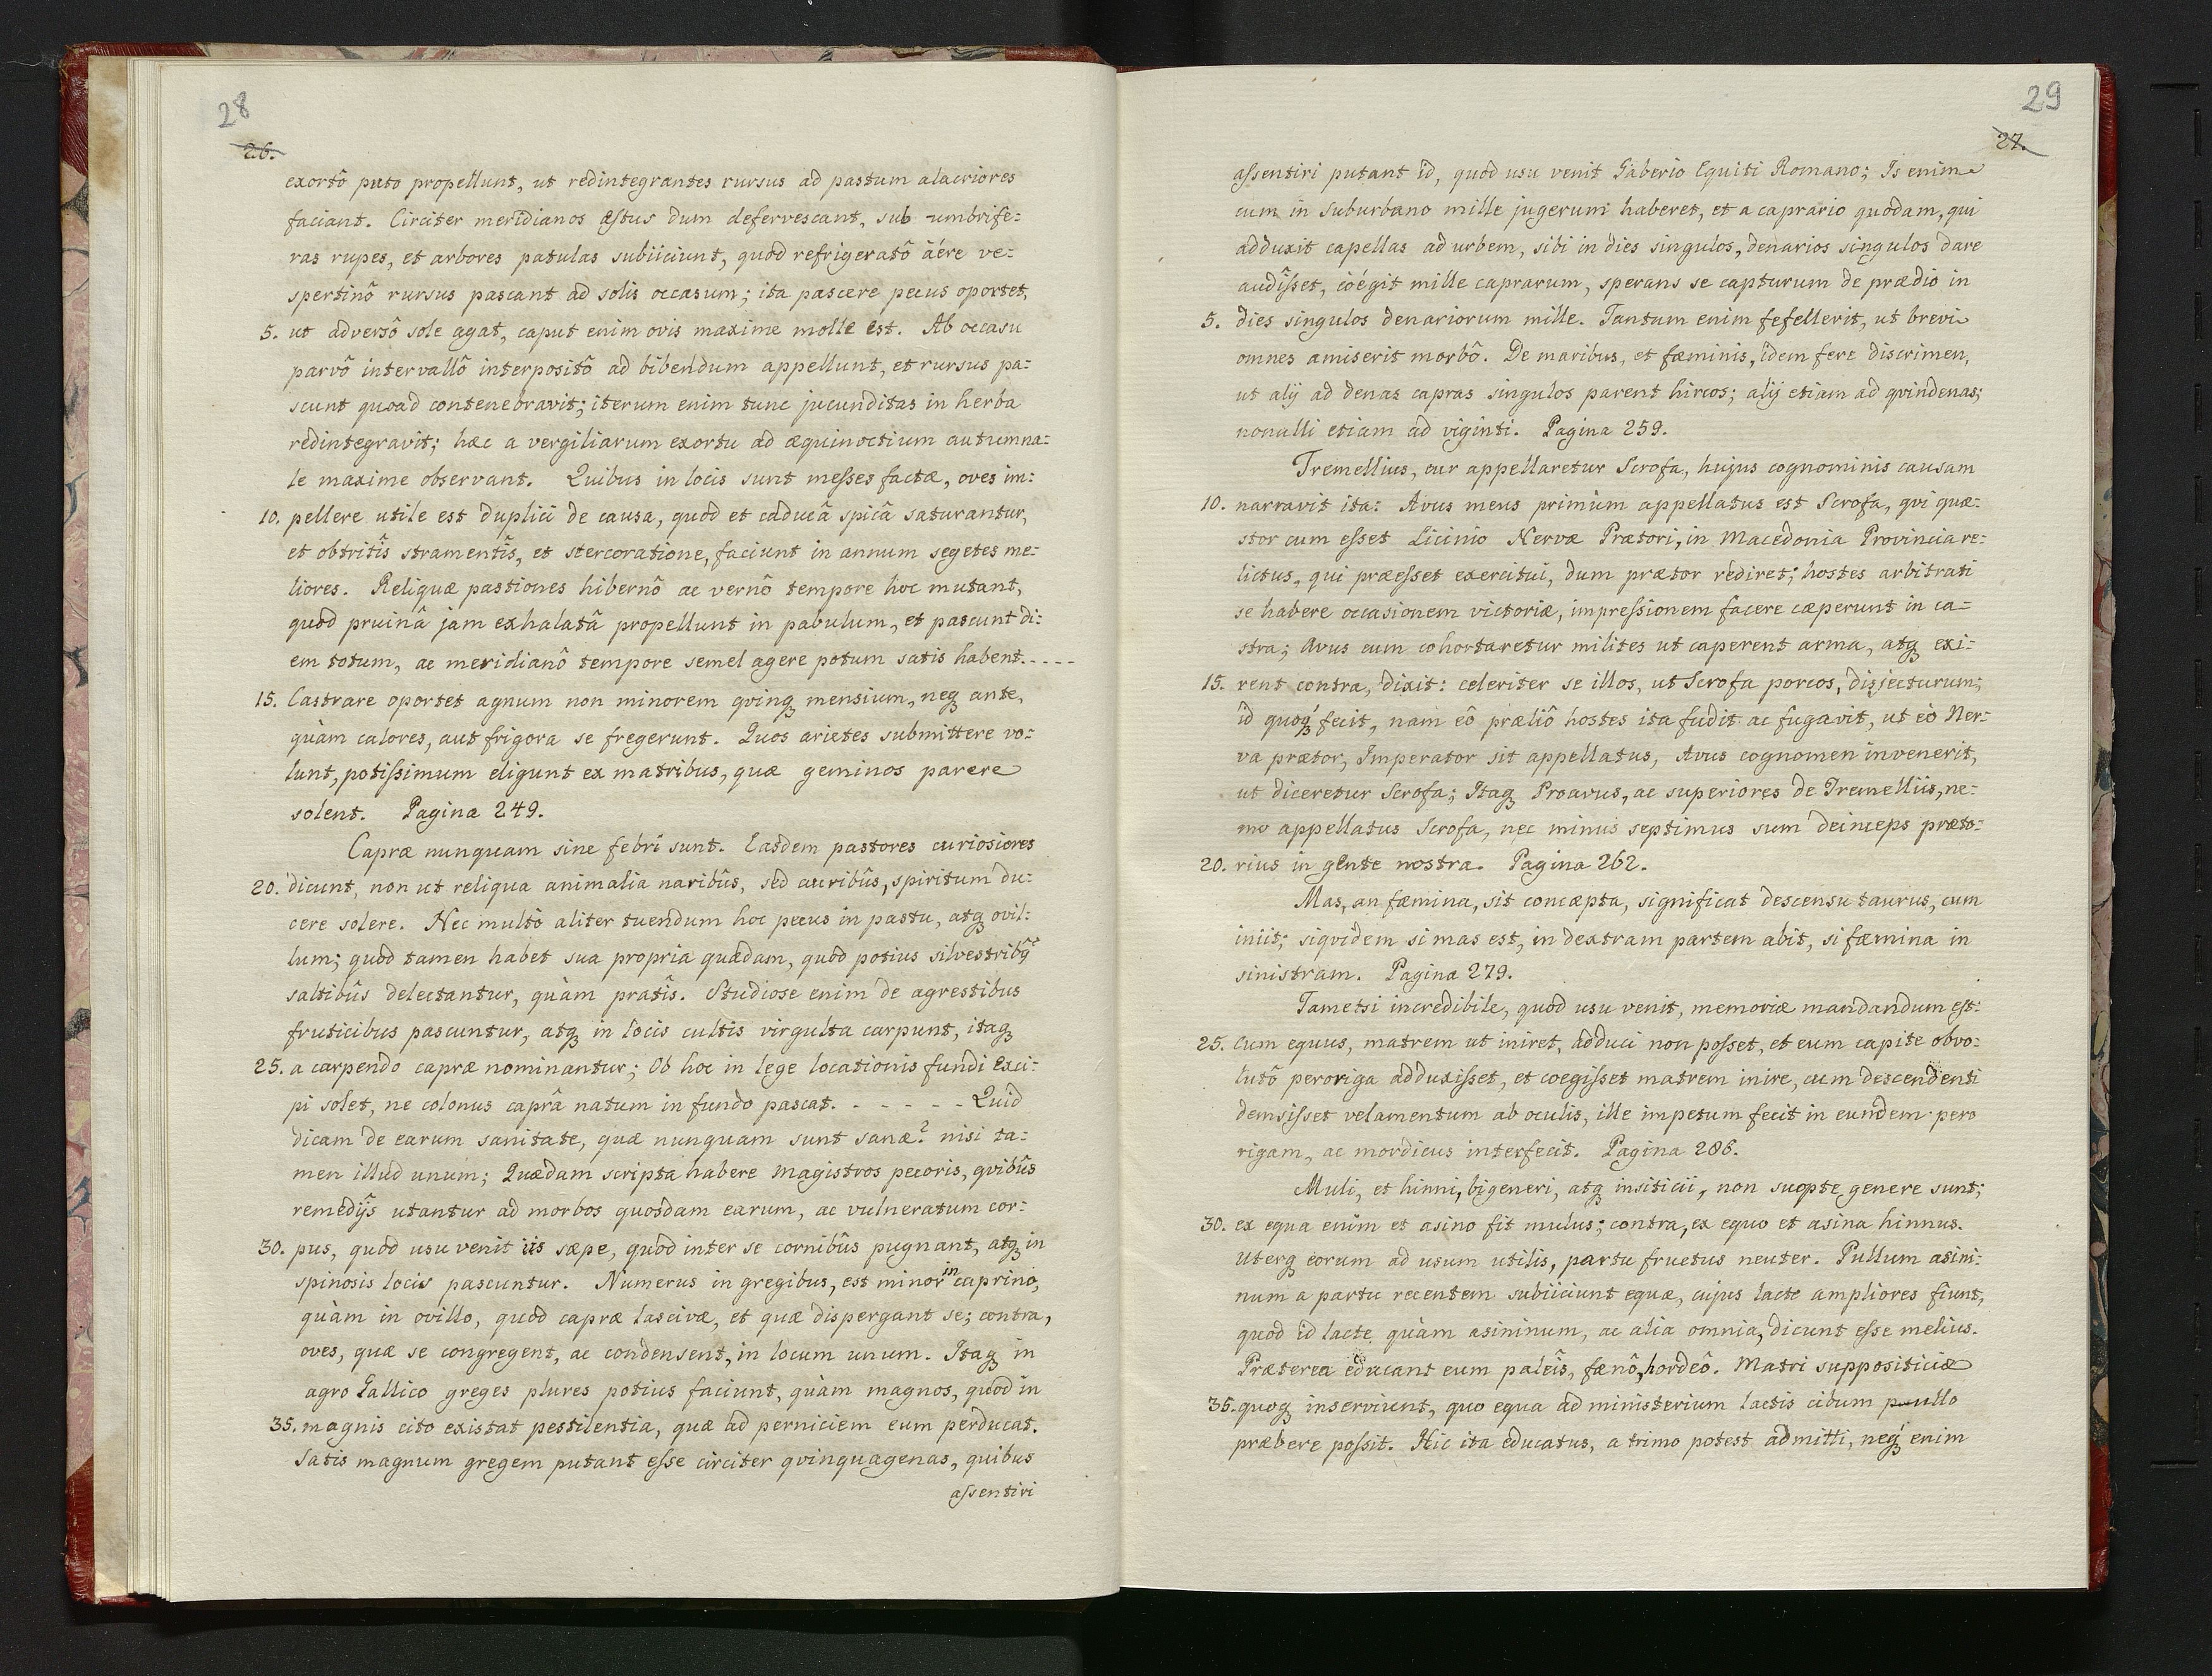 28
26.
exortô puto propellunt, ut redintegrantes rursus ad pastum alacriores
faciant. Circiter meridianos æstus dum defervescant, sub umbrife:
ras rupes, et arbores patulas subiiciunt, quod refrigeratô äére ve:
spertinô rursus pascant ad solis occasum; ita pascere pecus oportet,
5. ut adversô sole agat, caput enim ovis maxime molle est. Ab occasu
parvô intervallô interpositô ad bibendum appellunt, et rursus pa:
scunt quoad contenebravit; iterum enim tunc jucunditas in herba
redintegravit; hæc a vergiliarum exortu ad æquinoctium autumna:
le maxime observant. Quibus in locis sunt meſses factæ, oves im:
10. pellere utile est duplici de causa, quod et caducâ spicâ saturantur,
et obtritîs stramentîs, et stercoratione, faciunt in annum segetes me:
liores. Reliquæ pastiones hibernô ac vernô tempore hoc mutant,
quod pruinâ jam exhalatâ propellunt in pabulum, et pascunt di:
em totum, ac meridianô tempore semel agere potum satis habent.----
15. Castrare oportet agnum non minorem qvinqꝫ mensium, neqꝫ ante,
quàm calores, aut frigora se fregerunt. Quos arietes submittere vo:
lunt, potiſsimum eligunt ex matribus, quæ geminos parere
solent. Pagina 249.
Capræ nunquam sine febri sunt. Easdem pastores curiosiores
20. dicunt, non ut reliqua animalia naribûs, sed auribûs, spiritum du:
cere solere. Nec multò aliter tuendum hoc pecus in pastu, atqꝫ ovil:
lum; quod tamen habet sua propria quædam, quod potius silvestribꝫ
saltibûs delectantur, quàm pratîs. Studiose enim de agrestibus
fruticibus pascuntur, atqꝫ in locis cultis virgulta carpunt, itaqꝫ
25. a carpendo capræ nominantur; Ob hoc in lege locationis fundi exci:
pi solet, ne colonus caprâ natum in fundo pascat. - - - - - - Quid
dicam de earum sanitate, quæ nunquam sunt sanæ? nisi ta:
men illud unum; Quædam scripta habere magistros pecoris, qvibûs
remedijs utantur ad morbos quosdam earum, ac vulneratum cor:
30. pus, quod usu venit iis sæpe, quod inter se cornibûs pugnant, atqꝫ in
spinosis locis pascuntur. Numerus in gregibus, est minor in caprino,
quàm in ovillo, quod capræ lascivæ, et quæ dispergant se; contra,
oves, quæ se congregent, ac condensent, in locum unum. Itaqꝫ in
agro Gallico greges plures potius faciunt, quàm magnos, quod in
35. magnis cito existat pestilentia, quæ ad perniciem eum perducat.
Satis magnum gregem putant eſse circiter qvinquagenas, quibus
aſsentiri
29
27.
aſsentiri putant id, quod usu venit Gaberio Equiti Romano; Is enim
cum in suburbano mille jugerum haberet, et a caprario quodam, qui
adduxit capellas ad urbem, sibi in dies singulos, denarios singulos dare
audîſset, coégit mille caprarum, sperans se capturum de prædio in
5. dies singulos denariorum mille. Tantum enim fefellerit, ut brevi
omnes amiserit morbô. De maribus, et fæminis, idem fere discrimen,
ut alij ad denas capras singulos parent hircos; alij etiam ad qvindenas;
nonulli etiam ad viginti. Pagina 259.
Tremellius, cur appellaretur Scrofa, hujus cognominis causam
10. narravit ita: Avus meus primùm appellatus est Scrofa, qvi quæ:
stor cum eſset Licinio Nervæ Prætori, in Macedonia Provincia re:
lictus, qui præeſset exercitui, dum prætor rediret; hostes arbitrati
se habere occasionem victoriæ, impreſsionem facere cæperunt in ca:
stra; Avus cum cohortaretur milites ut caperent arma, atqꝫ exi:
15. rent contra, dixit: celeriter se illos, ut Scrofa porcos, disjecturum;
id quoqꝫ fecit, nam eô præliô hostes ita fudit ac fugavit, ut eò Ner:
va prætor, Imperator sit appellatus, Avus cognomen invenerit,
ut diceretur Scrofa; Itaqꝫ Proavus, ac superiores de Tremelliis, ne:
mo appellatus Scrofa, nec minus septimus sum deinceps præto:
20. rius in gente nostra. Pagina 262.
Mas, an fæmina, sit concæpta, significat descensu taurus, cum
iniit; siqvidem si mas est, in dextram partem abit, si fæmina in
sinistram. Pagina 279.
Tametsi incredibile, quod usu venit, memoriæ mandandum est:
25. Cum equus, matrem ut iniret, adduci non poſset, et eum capite obvo:
lutô peroriga adduxiſset, et coegiſset matrem inire, cum descendenti
demsiſset velamentum ab oculis, ille impetum fecit in eundem pero
rigam, ac mordicus interfecit. Pagina 286.
Muli, et hinni, bigeneri, atqꝫ insiticii, non suopte genere sunt;
30. ex equa enim et asino fit mulus; contra, ex equo et asina hinnus.
Uterqꝫ eorum ad usum utilis, partu fructus neuter. Pullum asini:
num a partu recentem subiiciunt equæ, cujus lacte ampliores fiunt,
quod id lacte quàm asininum, ac alia omnia, dicunt eſse melius.
Præterea educant eum paleîs, fænô, hordeô. Matri suppositiciæ
35. quoqꝫ inserviunt, quo equa ad ministerium lactis cibum pullo
præbere poſsit. Hic ita educatus, a trimo potest admitti, neqꝫ enim